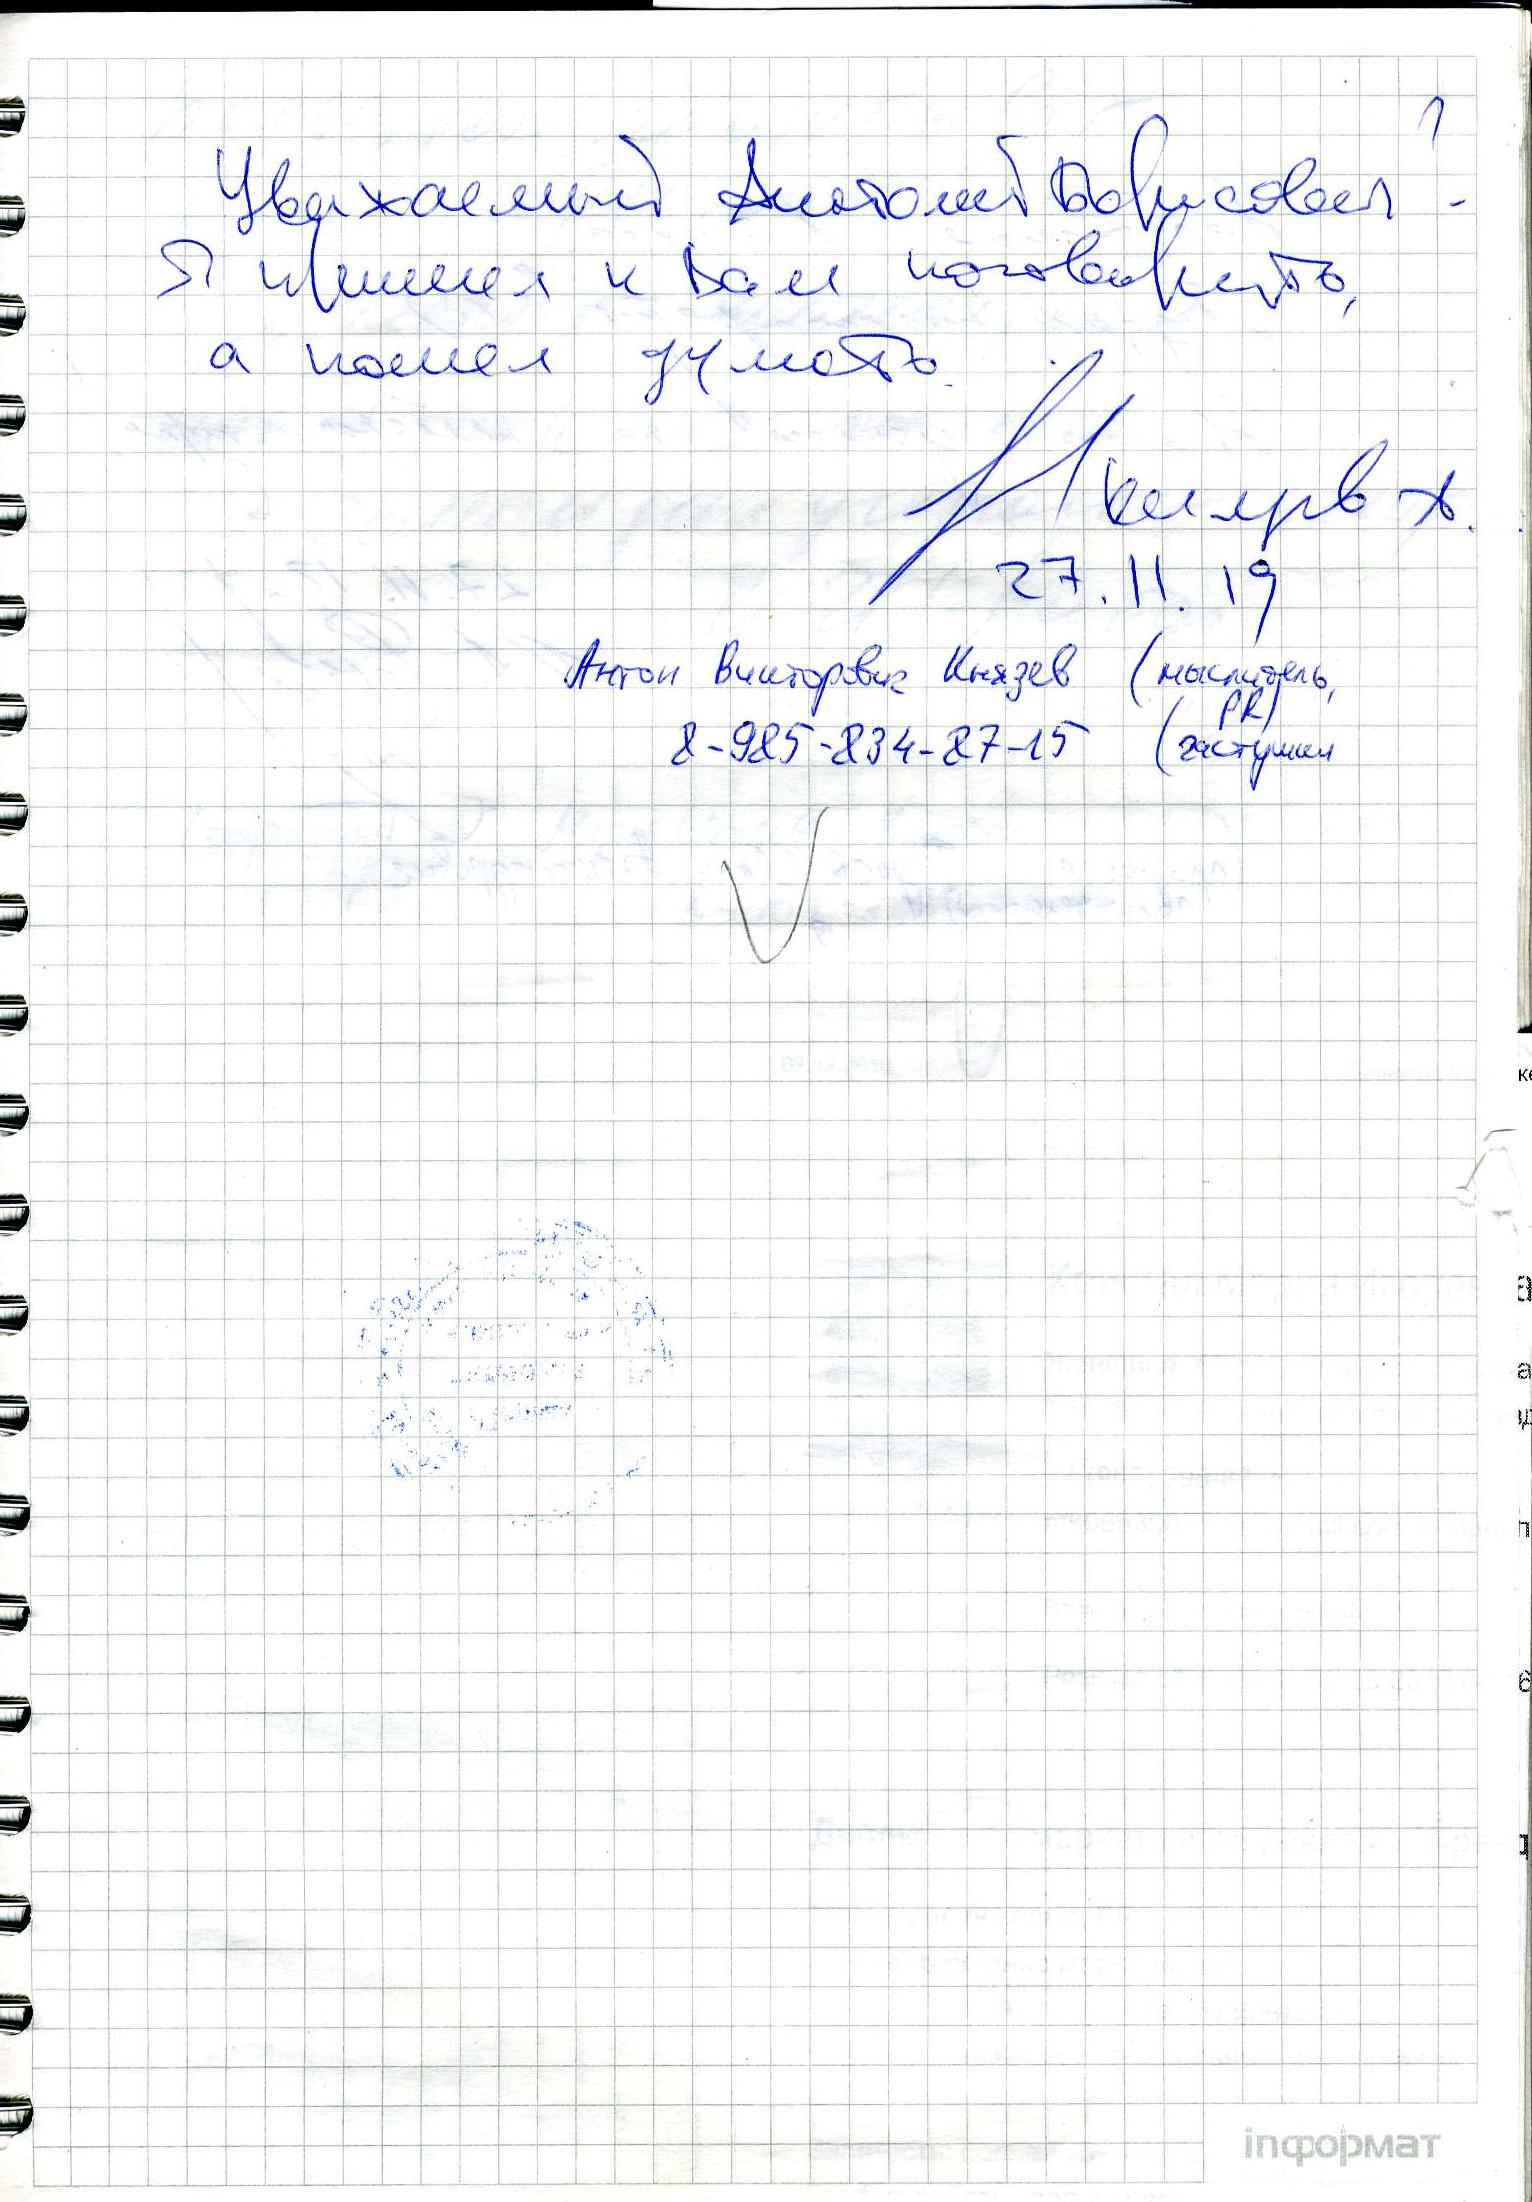 Уважаемый Анатолий Борисович!
Я пришел к Вам поговорить,
а пошел думать.
А.
27.11.19
Антон Викторович Князев (мыслитель,
PR)
8-985-834-87-15 (частушки
inформат